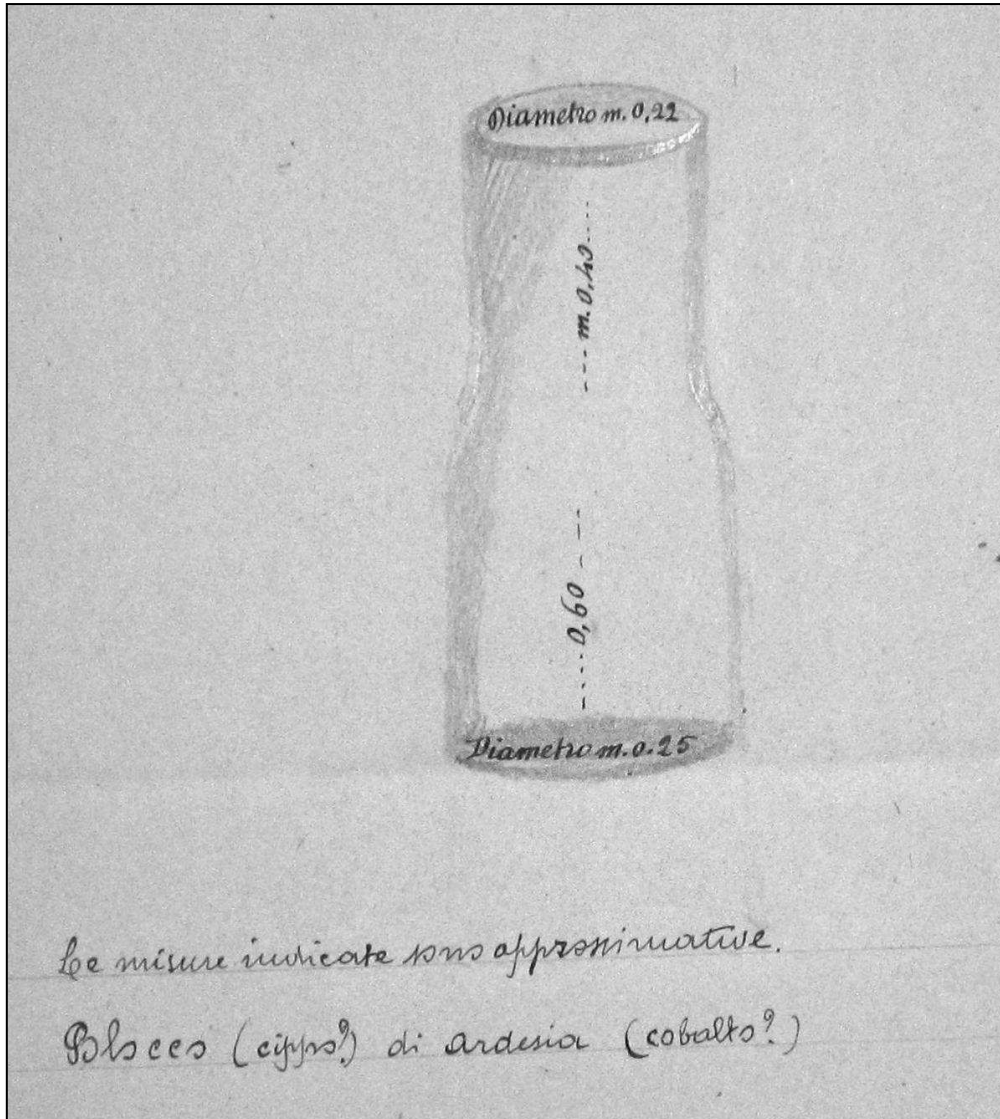 Diametro m. 0,22
---m. 0,40.....
.....0,60 - --
Diametro m.0.25
Le misure indicate sono approssimative.
Blocco (cippo?) di ardesia (cobalto?)